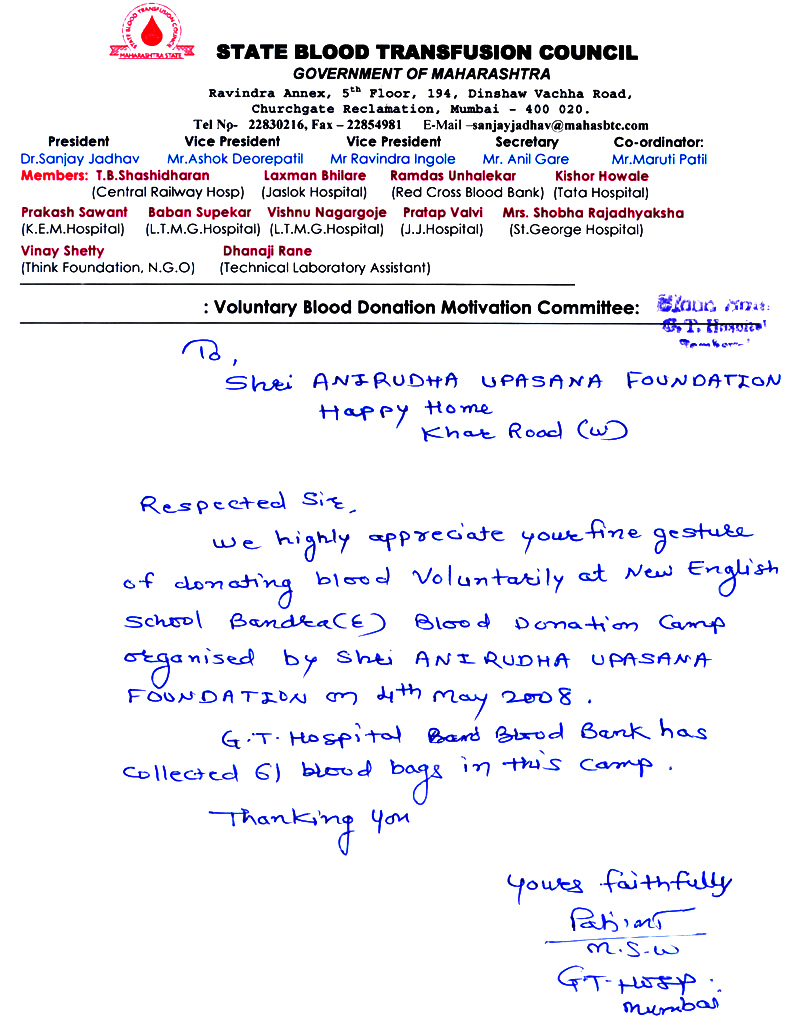 STATE BLOOD TRANSFUSION COUNCIL
MAHARASHTRA STATE
STATE BLOOD TRANSFUSION COUNCIL
GOVERNMENT OF MAHARASHTRA
Ravindra Annex, 5th Floor, 194, Dinshaw Vachha Road,
Churchgate Reclamation, Mumbai – 400 020.
Tel Np- 22830216, Fax – 22854981 E-Mail –sanjayjadhav@mahasbtc.com
President Vice President Vice President Secretary Co-ordinator:
Dr.Sanjay Jadhav Mr.Ashok Deorepatil Mr Ravindra Ingole Mr. Anil Gare Mr.Maruti Patil
Members: T.B.Shashidharan Laxman Bhilare Ramdas Unhalekar Kishor Howale
(Central Railway Hosp) (Jaslok Hospital) (Red Cross Blood Bank) (Tata Hospital)
Prakash Sawant Baban Supekar Vishnu Nagargoje Pratap Valvi Mrs. Shobha Rajadhyaksha
(K.E.M.Hospital) (L.T.M.G.Hospital) (L.T.M.G.Hospital) (J.J.Hospital) (St.George Hospital)
Vinay Shetty Dhanaji Rane
(Think Foundation, N.G.O) (Technical Laboratory Assistant)
: Voluntary Blood Donation Motivation Committee:
Blood
G.T. Hospital
To,
Shri ANIRUDHA UPASANA FOUNDATION
Happy Home
Khar Road (W)
Respected Sir,
We highly appreciate your fine gesture
of donating blood Voluntarily at New English
School Bandra(E) Blood Donation Camp
organised by Shri ANIRUDHA UPASANA
FOUNDATION on 4th May 2008.
G.T. Hospital Blood Bank has
collected 61 blood bags in this camp.
Thanking you
Yours faithfully
M.S.W
GT-Hosp.
Mumbai